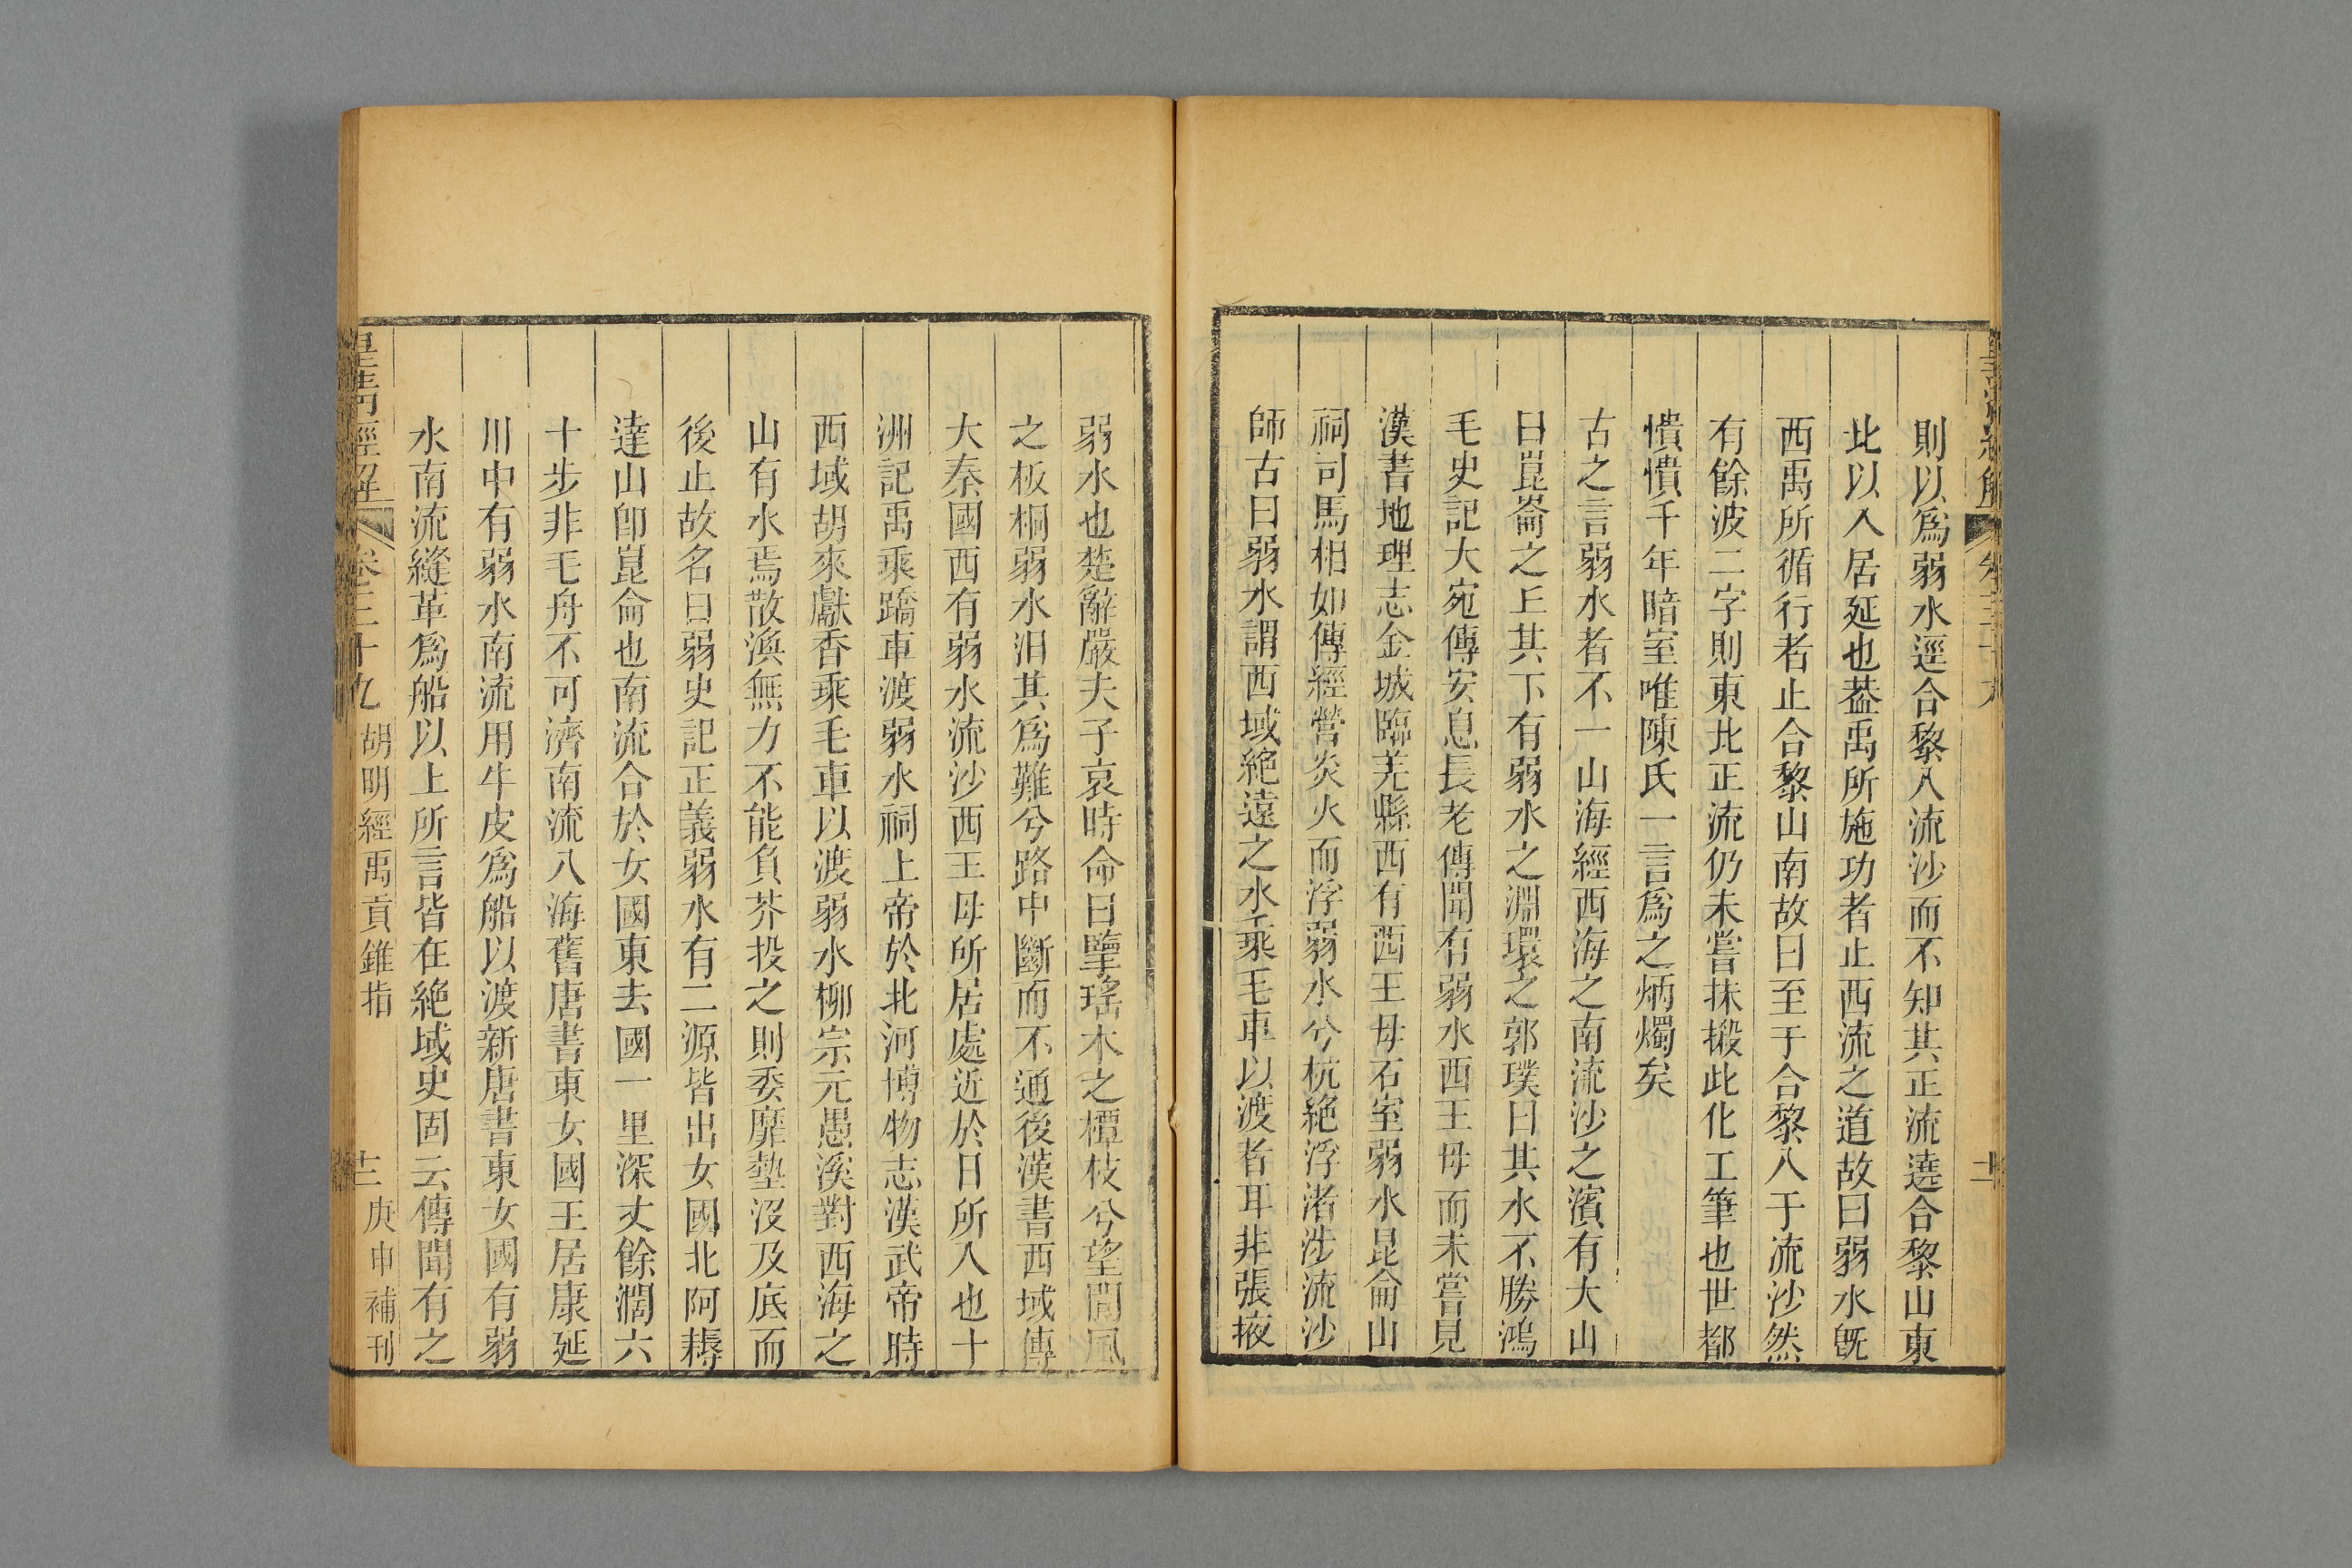 則以爲弱水逕合黎入流沙而不知其正流遶合黎山東
北以入居延也葢禹所施功者止西流之道故曰弱水旣
西禹所循行者止合黎山南故曰至于合黎入于流沙然
有餘波二字則東北正流仍未嘗抹摋此化工筆也世都
憒憒千年暗室唯陳氏一言爲之炳燭矣
古之言弱水者不一山海經西海之南流沙之濱有大山
曰崑崙之丘其下有弱水之淵環之郭璞曰其水不勝鴻
毛史記大宛傳安息長老傳聞有弱水西王母而未嘗見
漢書地理志金城臨羌縣西有西王母石室弱水昆侖山
祠司馬相如傳經營炎火而浮弱水兮杭絶浮渚涉流沙
師古曰弱水謂西域絶遠之水乘毛車以渡者耳非張掖
弱水也楚辭嚴夫子哀時命曰擥瑤木之橝枝兮望閬風
之板桐弱水汨其爲難兮路中斷而不通後漢書西域傳
大秦國西有弱水流沙西王母所居處近於日所入也十
洲記禹乘蹻車渡弱水祠上帝於北河博物志漢武帝時
西域胡來獻香乘毛車以渡弱水柳宗元愚溪對西海之
山有水焉散渙無力不能負芥投之則委靡墊沒及底而
後止故名曰弱史記正義弱水有二源皆出女國北阿耨
達山卽崑侖也南流合於女國東去國一里深丈餘濶六
十步非毛舟不可濟南流入海舊唐書東女國王居康延
川中有弱水南流用牛皮爲船以渡新唐書東女國有弱
水南流縫革爲船以上所言皆在絶域史固云傳聞有之
皇淸經解 卷三十九 胡明經禹貢錐指 十二 庚申補刊